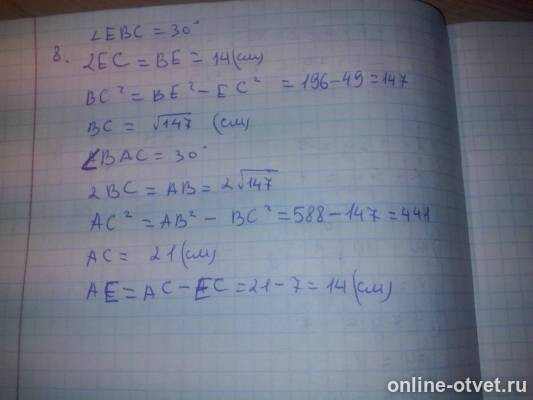 ∠EBC = 30°
8. 2EC = BE = 14 (см)
BC² = BE² - EC² = 196 - 49 = 147
BC = √147 (см)
∠BAC = 30°
2BC = AB = 2√147
AC² = AB² - BC² = 588 - 147 = 441
AC = 21 (см)
AE = AC - EC = 21 - 7 = 14 (см)
online-otvet.ru